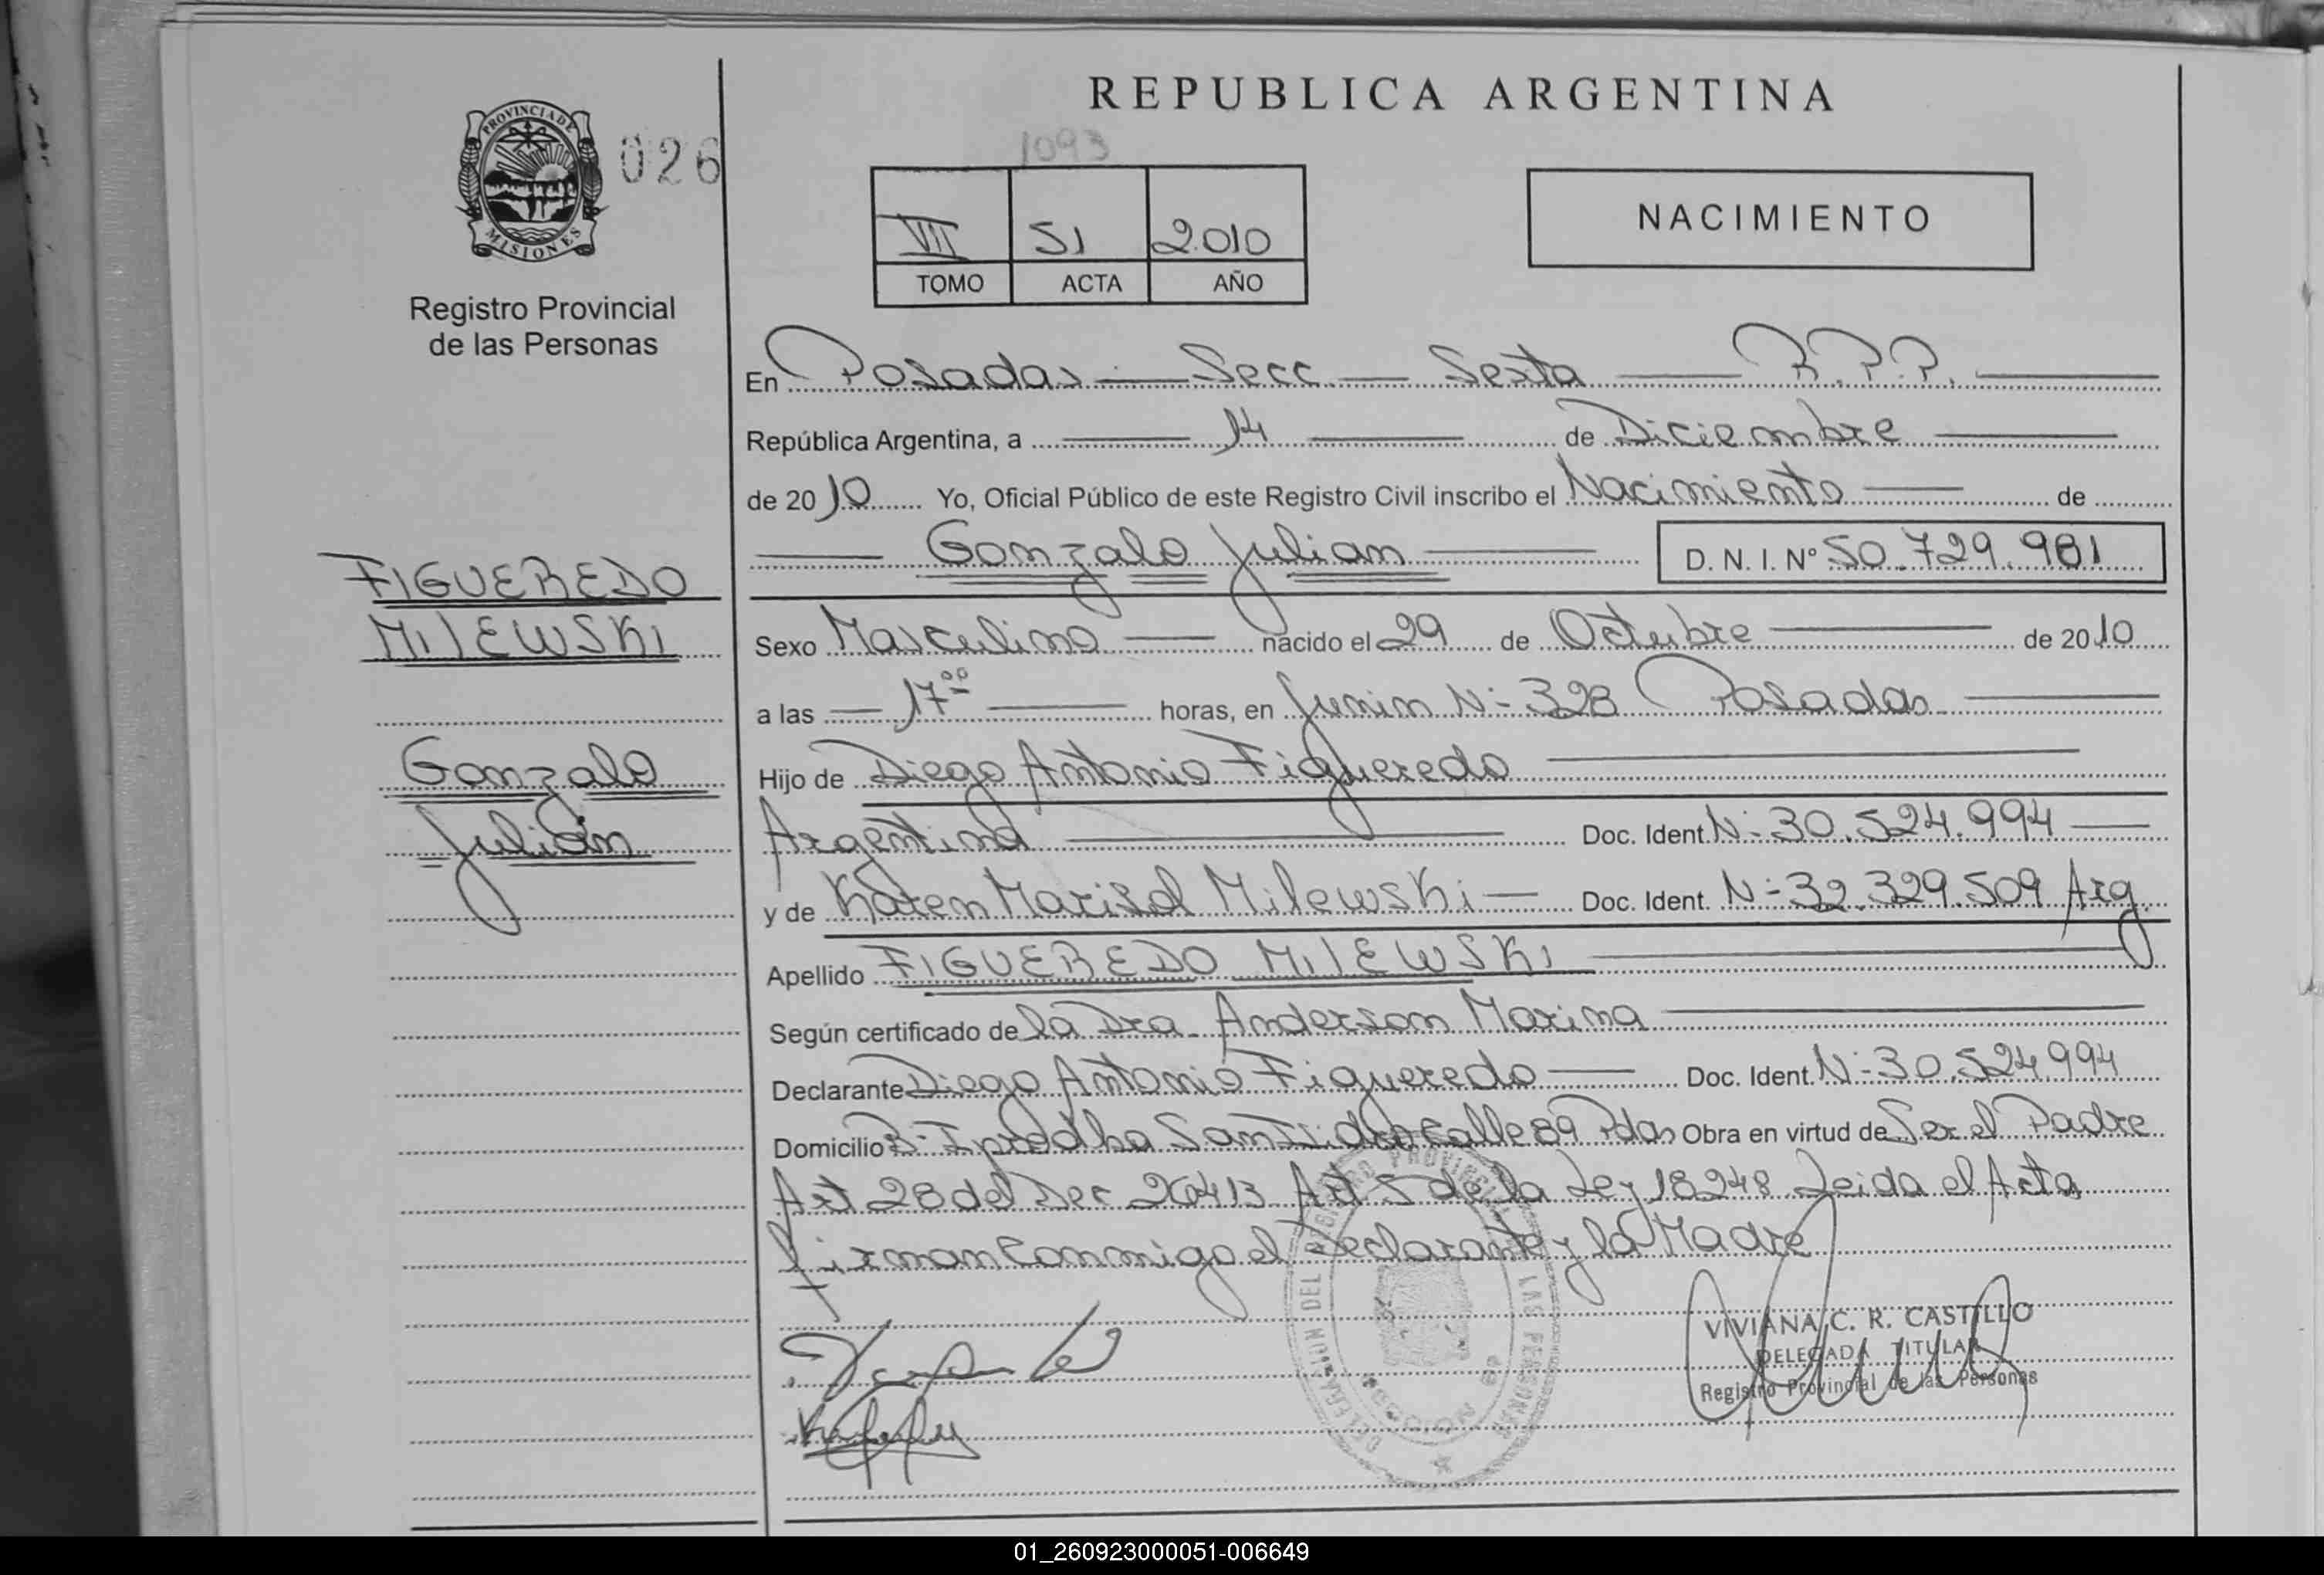 REPUBLICA ARGENTINA
PROVINCIA DE
MISIONES
026
1093
VII 51 2.010
TOMO ACTA AÑO
NACIMIENTO
Registro Provincial
de las Personas
En Posadas - Secc - Sexta - R.P.P.
República Argentina, a 14 de Diciembre
de 2010 Yo, Oficial Público de este Registro Civil inscribo el Nacimiento de
Gonzalo Julian D. N. I. Nº 50.729.981
FIGUEREDO
MILEWSKI
Sexo Masculino nacido el 29 de Octubre de 2010
a las 17 00 horas, en Junin N- 328 Posadas
Gonzalo
Julián
Hijo de Diego Antonio Figueredo
Argentina Doc. Ident. N- 30.524.994
y de Karen Marisol Milewski Doc. Ident. N- 32.329.509 Arg.
Apellido FIGUEREDO MILEWSKI
Según certificado de la Dra. Anderson Marina
Declarante Diego Antonio Figueredo Doc. Ident. N- 30.524994
Domicilio B- Iprodha San Isidro Calle 89 Pdas Obra en virtud de Ser el Padre
Art 28 del Dec 26413 Art 5 de la Ley 18248 Leida el Acta
firman Conmigo el Declarante y la Madre
DELEGACION DEL REGISTRO PROVINCIAL LAS PERSONAS
SECCION 6ª
VIVIANA C. R. CASTILLO
DELEGADA TITULAR
Registro Provincial de las Personas
01_260923000051-006649